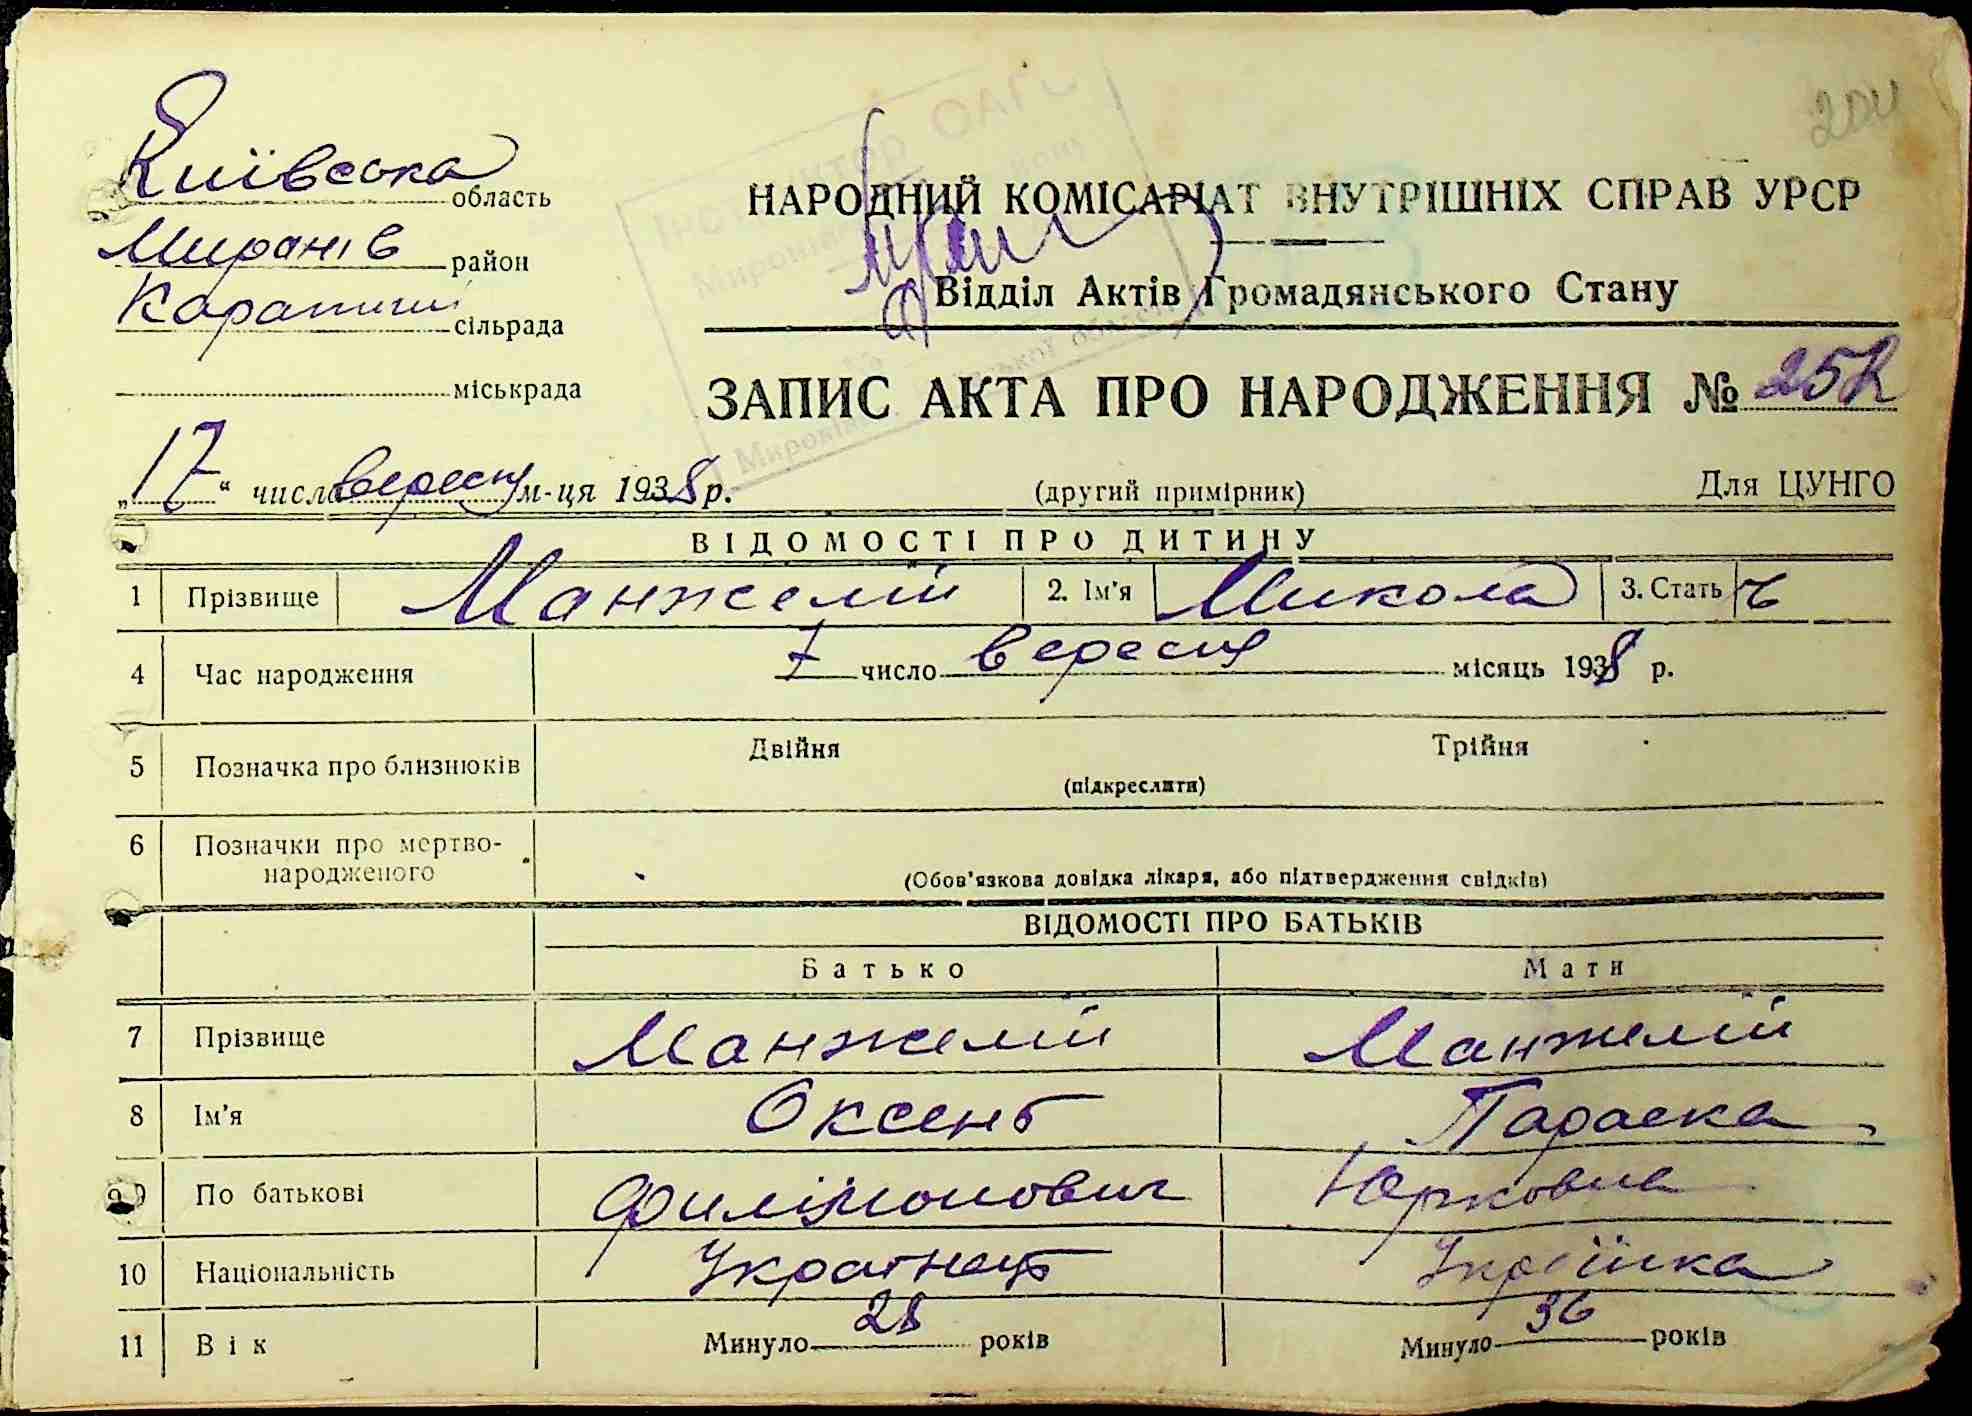 Київська область
НАРОДНИЙ КОМІСАРІАТ ВНУТРІШНІХ СПРАВ УРСР
Миронів район
Відділ Актів Громадянського Стану
Карапиші сільрада
міськрада
ЗАПИС АКТА ПРО НАРОДЖЕННЯ № 252
„17“ числа вересня м-ця 1938 р.
(другий примірник)
Для ЦУНГО
ВІДОМОСТІ ПРО ДИТИНУ
1 Прізвище Манжелій 2. Ім'я Микола 3. Стать ч
4 Час народження 7 число вересня місяць 1938 р.
5 Позначка про близнюків Двійня Трійня
(підкреслити)
6 Позначки про мертво-
народженого
(Обов'язкова довідка лікаря, або підтвердження свідків)
ВІДОМОСТІ ПРО БАТЬКІВ
Батько Мати
7 Прізвище Манжелій Манжелій
8 Ім'я Оксент Параска
9 По батькові Филімонович Юрковна
10 Національність Українець Українка
11 Вік Минуло 28 років Минуло 36 років